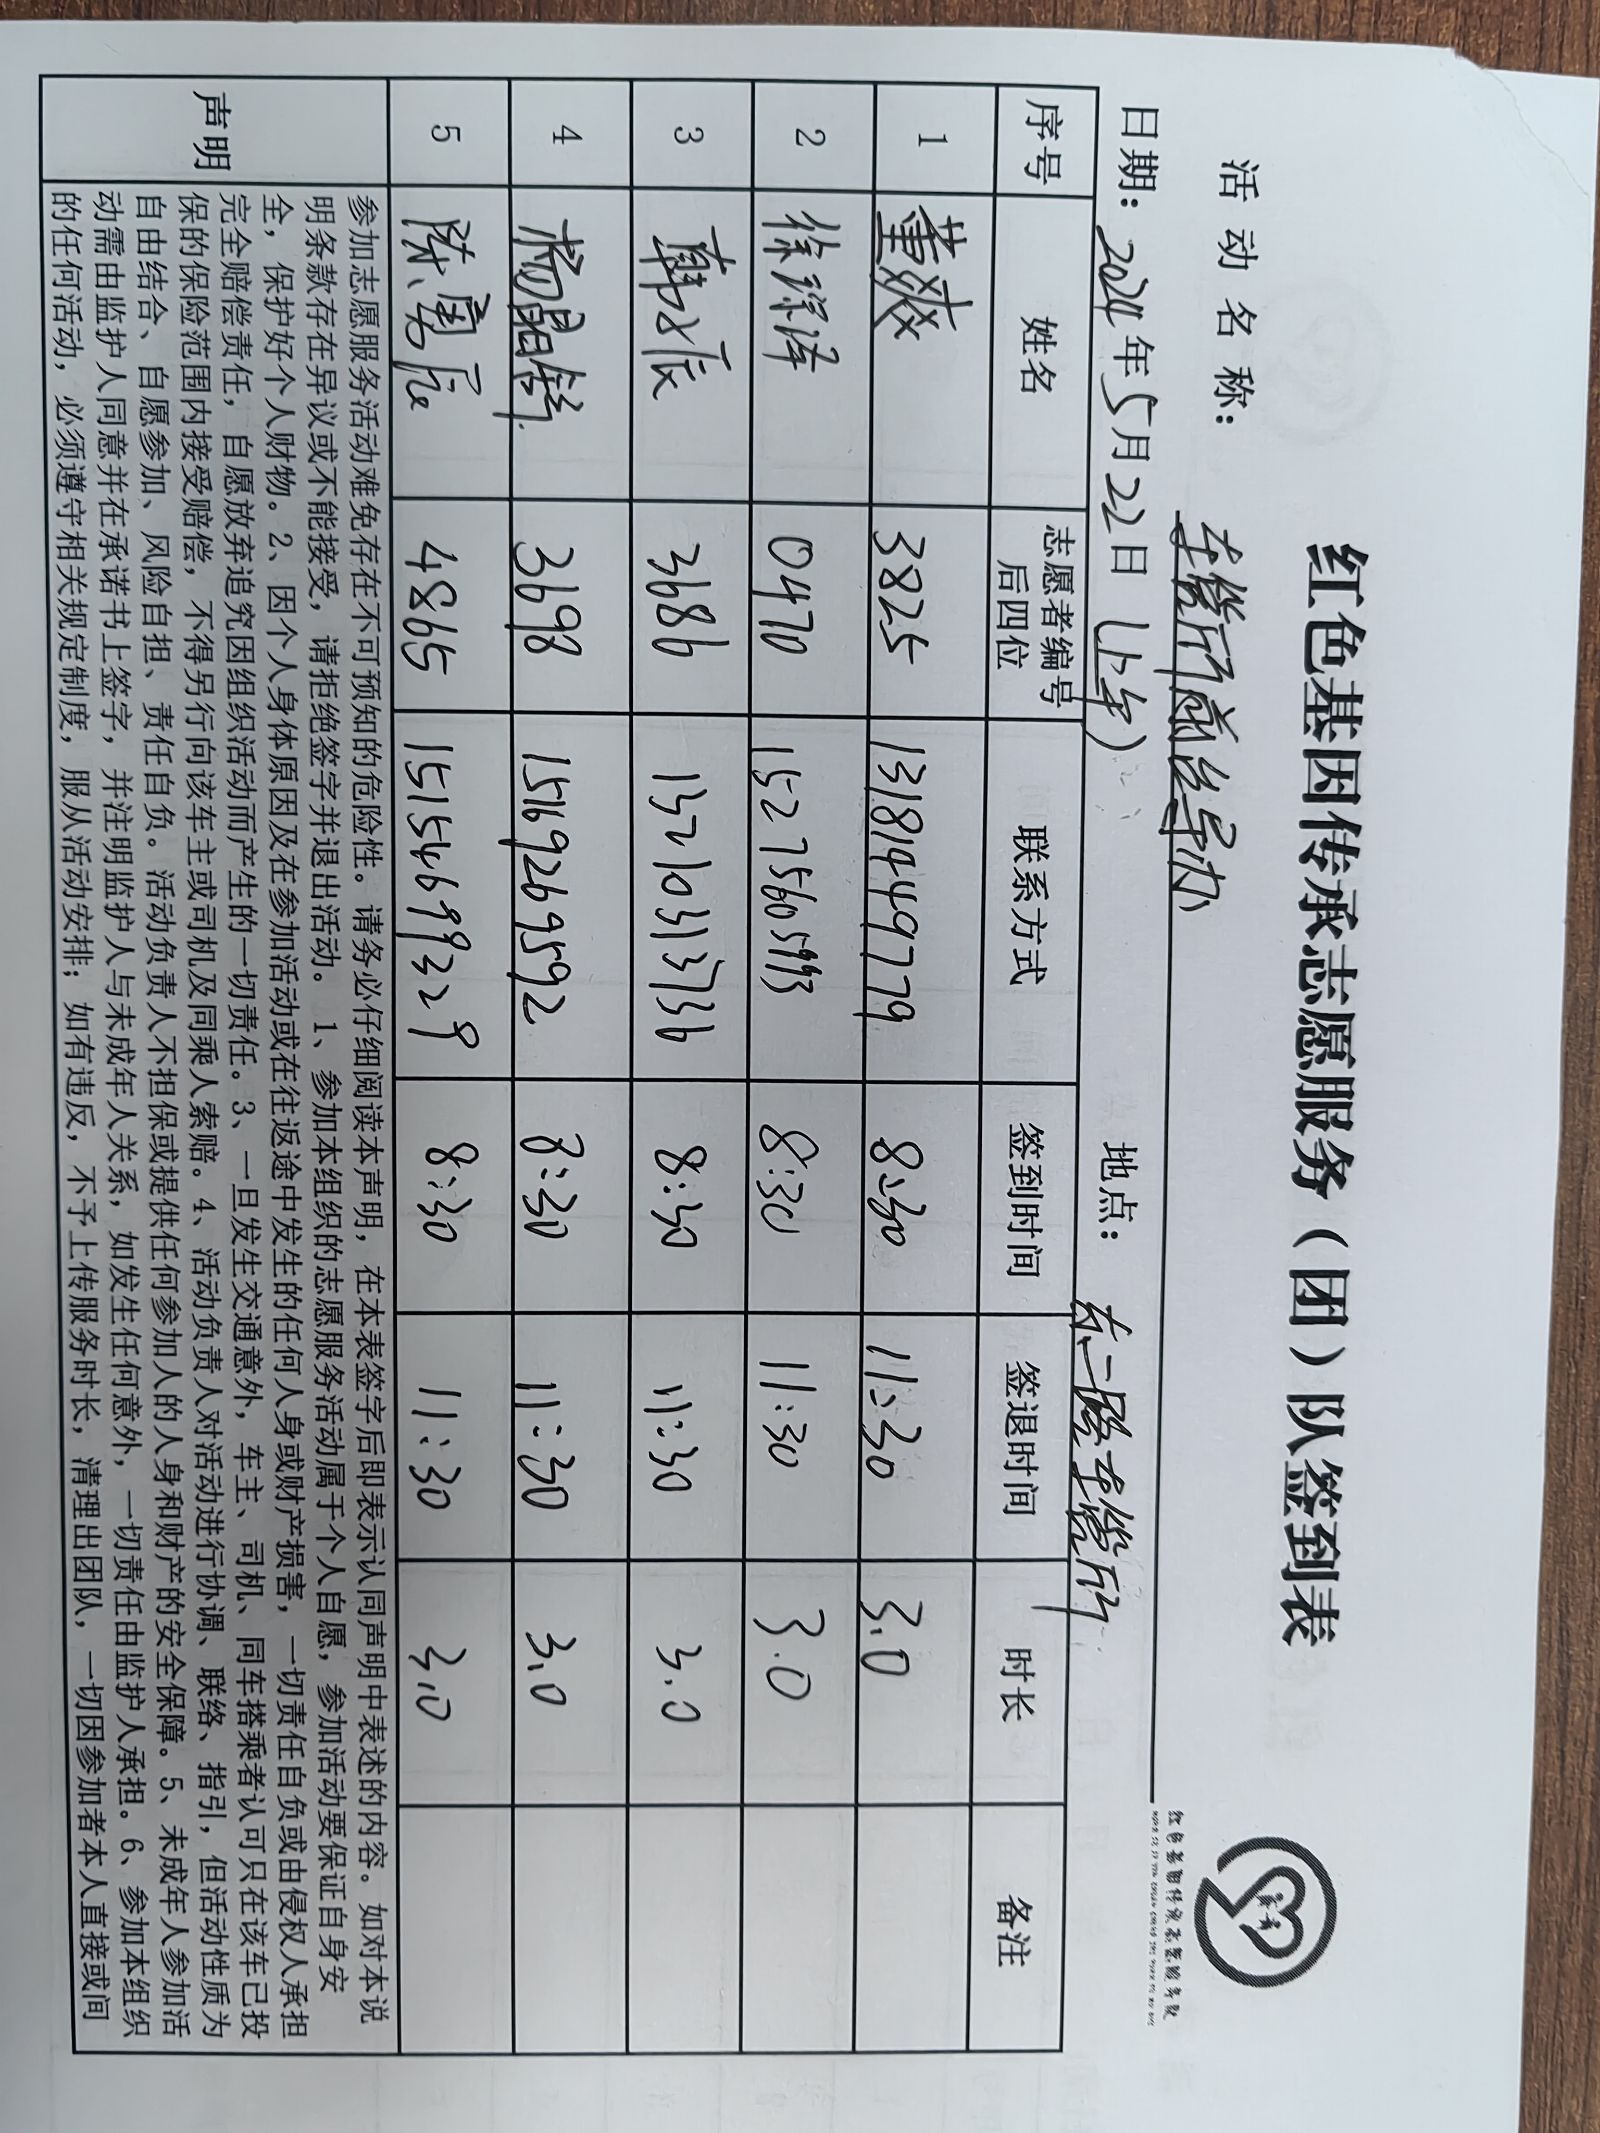 红色基因传承志愿服务（团）队签到表
活动名称：车管所前台导办
日期：2024年5月22日（上午） 地点：东二路车管所
序号 姓名 志愿者编号后四位 联系方式 签到时间 签退时间 时长 备注
1 董爽 3825 13181449779 8:30 11:30 3.0
2 徐淙泽 0470 15275605993 8:30 11:30 3.0
3 韩文辰 3686 13210313736 8:30 11:30 3.0
4 杨晶锦 3698 15169269592 8:30 11:30 3.0
5 陈勇辰 4865 15154699329 8:30 11:30 3.0
声明
参加志愿服务活动难免存在不可预知的危险性。请务必仔细阅读本声明，在本表签字后即表示认同声明中表述的内容。如对本说
明条款存在异议或不能接受，请拒绝签字并退出活动。1、参加本组织的志愿服务活动属于个人自愿，参加活动要保证自身安
全，保护好个人财物。2、因个人身体原因及在参加活动或在往返途中发生的任何人身或财产损害，一切责任自负或由侵权人承担
完全赔偿责任，自愿放弃追究因组织活动而产生的一切责任。3、一旦发生交通意外，车主、司机、同车搭乘者认可只在该车已投
保的保险范围内接受赔偿，不得另行向该车主或司机及同乘人索赔。4、活动负责人对活动进行协调、联络、指引，但活动性质为
自由结合、自愿参加、风险自担、责任自负。活动负责人不担保或提供任何参加人的人身和财产的安全保障。5、未成年人参加活
动需由监护人同意并在承诺书上签字，并注明监护人与未成年人关系，如发生任何意外，一切责任由监护人承担。6、参加本组织
的任何活动，必须遵守相关规定制度，服从活动安排；如有违反，不予上传服务时长，清理出团队，一切因参加者本人直接或间
红色基因传承志愿服务队